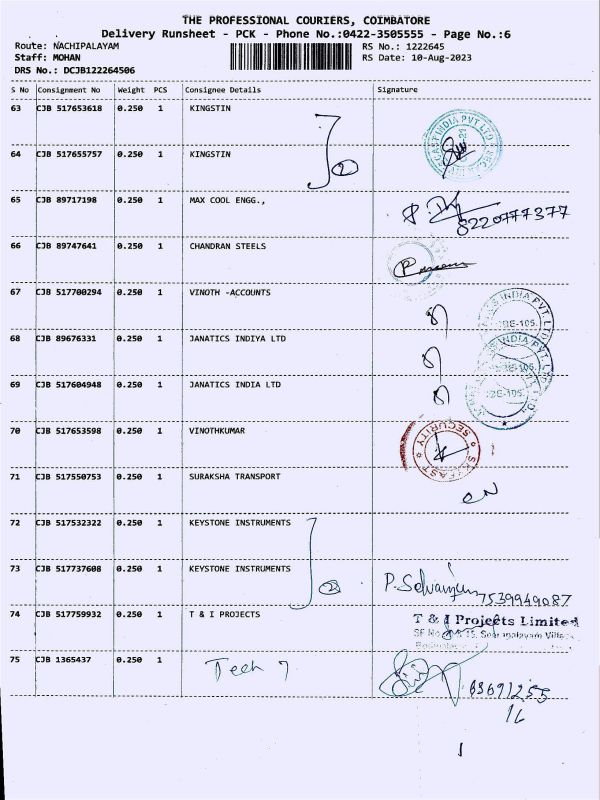 THE PROFESSIONAL COURIERS, COIMBATORE
Delivery Runsheet - PCK - Phone No.:0422-3505555 - Page No.:6
Route: NACHIPALAYAM RS No.: 1222645
Staff: MOHAN RS Date: 10-Aug-2023
DRS No.: DCJB122264506
S No Consignment No Weight PCS Consignee Details Signature
63 CJB 517653618 0.250 1 KINGSTIN
64 CJB 517655757 0.250 1 KINGSTIN
2
65 CJB 89717198 0.250 1 MAX COOL ENGG.,
8220777377
66 CJB 89747641 0.250 1 CHANDRAN STEELS
67 CJB 517700294 0.250 1 VINOTH -ACCOUNTS
68 CJB 89676331 0.250 1 JANATICS INDIYA LTD
69 CJB 517604948 0.250 1 JANATICS INDIA LTD
70 CJB 517653598 0.250 1 VINOTHKUMAR
SECURITY
71 CJB 517550753 0.250 1 SURAKSHA TRANSPORT
72 CJB 517532322 0.250 1 KEYSTONE INSTRUMENTS
73 CJB 517737608 0.250 1 KEYSTONE INSTRUMENTS
2
7539949087
74 CJB 517759932 0.250 1 T & I PROJECTS
T & I Projects Limited
75 CJB 1365437 0.250 1 Tech 7